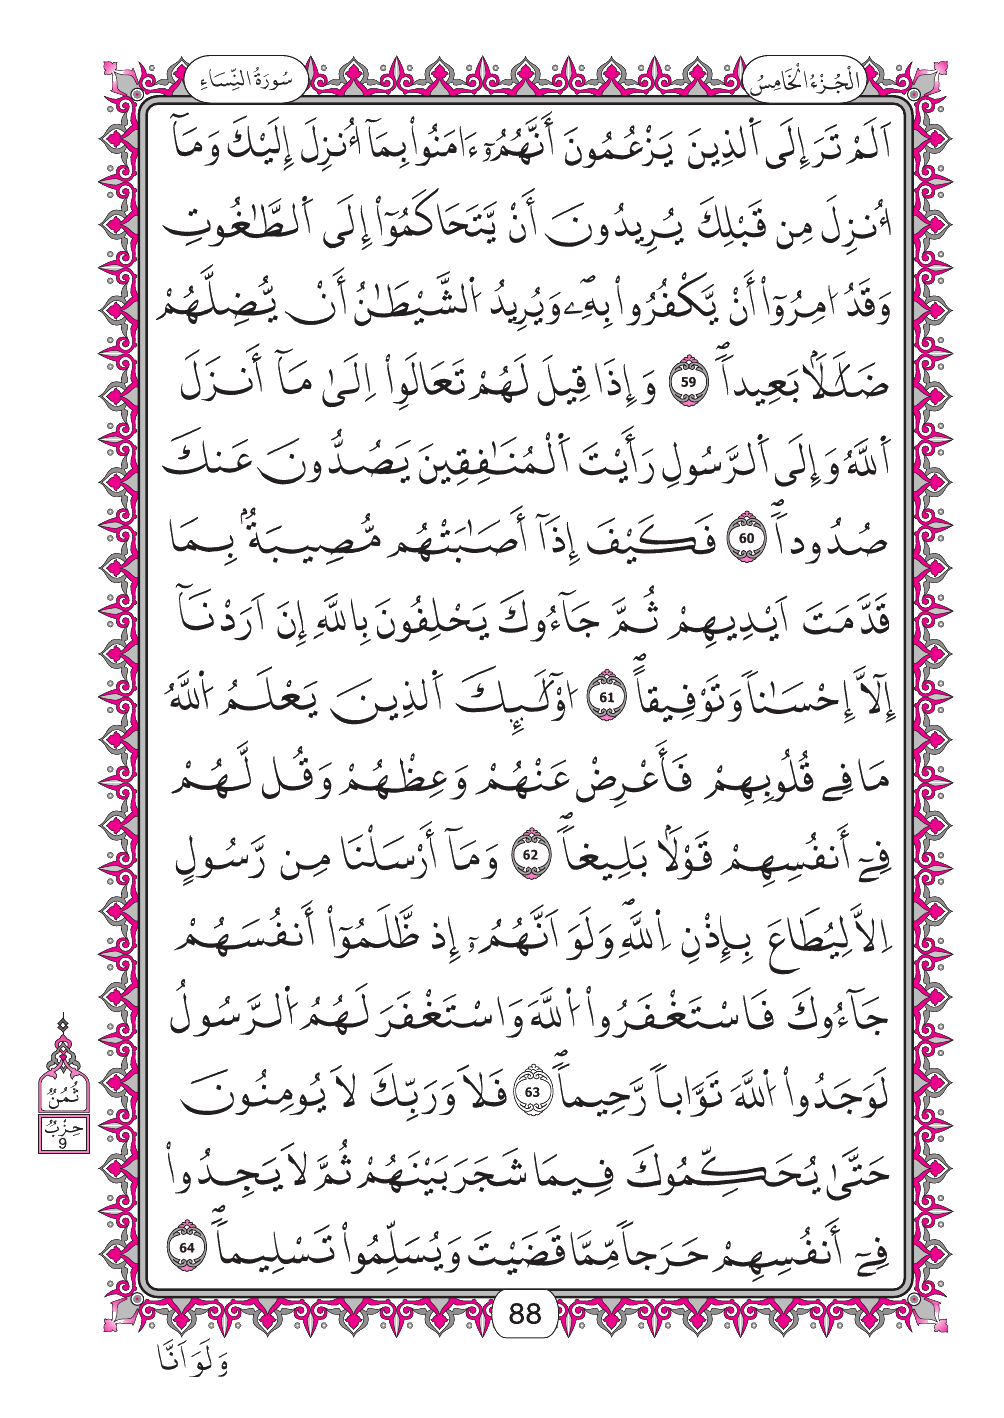 سُورَةُ النِّسَاءِ
الْجُزْءُ الْخَامِسُ
اَلَمْ تَرَ إِلَى اَ۬لذِينَ يَزْعُمُونَ أَنَّهُمُۥٓ ءَامَنُواْ بِمَآ أُنزِلَ إِلَيْكَ وَمَآ
أُنزِلَ مِن قَبْلِكَ يُرِيدُونَ أَنْ يَّتَحَاكَمُوٓاْ إِلَى اَ۬لطَّٰغُوتِ
وَقَدُ ا۟مِرُوٓاْ أَنْ يَّكْفُرُواْ بِهِۦۖ وَيُرِيدُ اُ۬لشَّيْطَٰنُ أَنْ يُّضِلَّهُمْ
ضَلَٰلَاۢ بَعِيداࣰۖ 59 وَإِذَا قِيلَ لَهُمْ تَعَالَوِاْ اِلَىٰ مَآ أَنزَلَ
اَ۬للَّهُ وَإِلَى اَ۬لرَّسُولِ رَأَيْتَ اَ۬لْمُنَٰفِقِينَ يَصُدُّونَ عَنكَ
صُدُوداࣰۖ 60 فَكَيْفَ إِذَآ أَصَٰبَتْهُم مُّصِيبَةُۢ بِمَا
قَدَّمَتَ اَيْدِيهِمْ ثُمَّ جَآءُوكَ يَحْلِفُونَ بِاللَّهِ إِنَ اَرَدْنَآ
إِلَّآ إِحْسَٰناࣰ وَتَوْفِيقاࣰۖ 61 ا۟وْلَٰٓئِكَ اَ۬لذِينَ يَعْلَمُ اُ۬للَّهُ
مَا فِے قُلُوبِهِمْ فَأَعْرِضْ عَنْهُمْ وَعِظْهُمْ وَقُل لَّهُمْ
فِےٓ أَنفُسِهِمْ قَوْلَاۢ بَلِيغاࣰۖ 62 وَمَآ أَرْسَلْنَا مِن رَّسُولٍ
اِلَّا لِيُطَاعَ بِإِذْنِ اِ۬للَّهِۖ وَلَوَ اَنَّهُمُۥٓ إِذ ظَّلَمُوٓاْ أَنفُسَهُمْ
جَآءُوكَ فَاسْتَغْفَرُواْ اُ۬للَّهَ وَاسْتَغْفَرَ لَهُمُ اُ۬لرَّسُولُ
لَوَجَدُواْ اُ۬للَّهَ تَوَّاباࣰ رَّحِيماࣰۖ 63 فَلَا وَرَبِّكَ لَا يُومِنُونَ
حَتَّىٰ يُحَكِّمُوكَ فِيمَا شَجَرَ بَيْنَهُمْ ثُمَّ لَا يَجِدُواْ
فِےٓ أَنفُسِهِمْ حَرَجاࣰ مِّمَّا قَضَيْتَ وَيُسَلِّمُواْ تَسْلِيماࣰۖ 64
ثُمُنٌ
حِزْبٌ
9
88
وَلَوَ اَنَّا